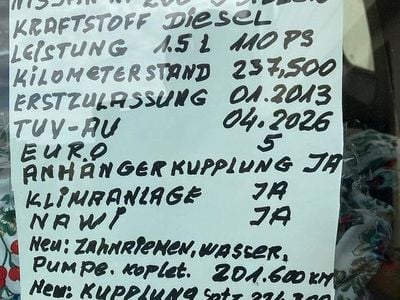 NISSAN NV 200
KRAFTSTOFF DIESEL
LEISTUNG 1.5 L 110 PS
KILOMETERSTAND 237,500
ERSTZULASSUNG 01.2013
TÜV-AU 04.2026
EURO 5
ANHÄNGERKUPPLUNG JA
KLIMAANLAGE JA
NAWI JA
Neu: ZAHNRIEMEN, WASSER,
PUMPE. KOPLET. 201.600 KM
Neu: KUPPLUNG